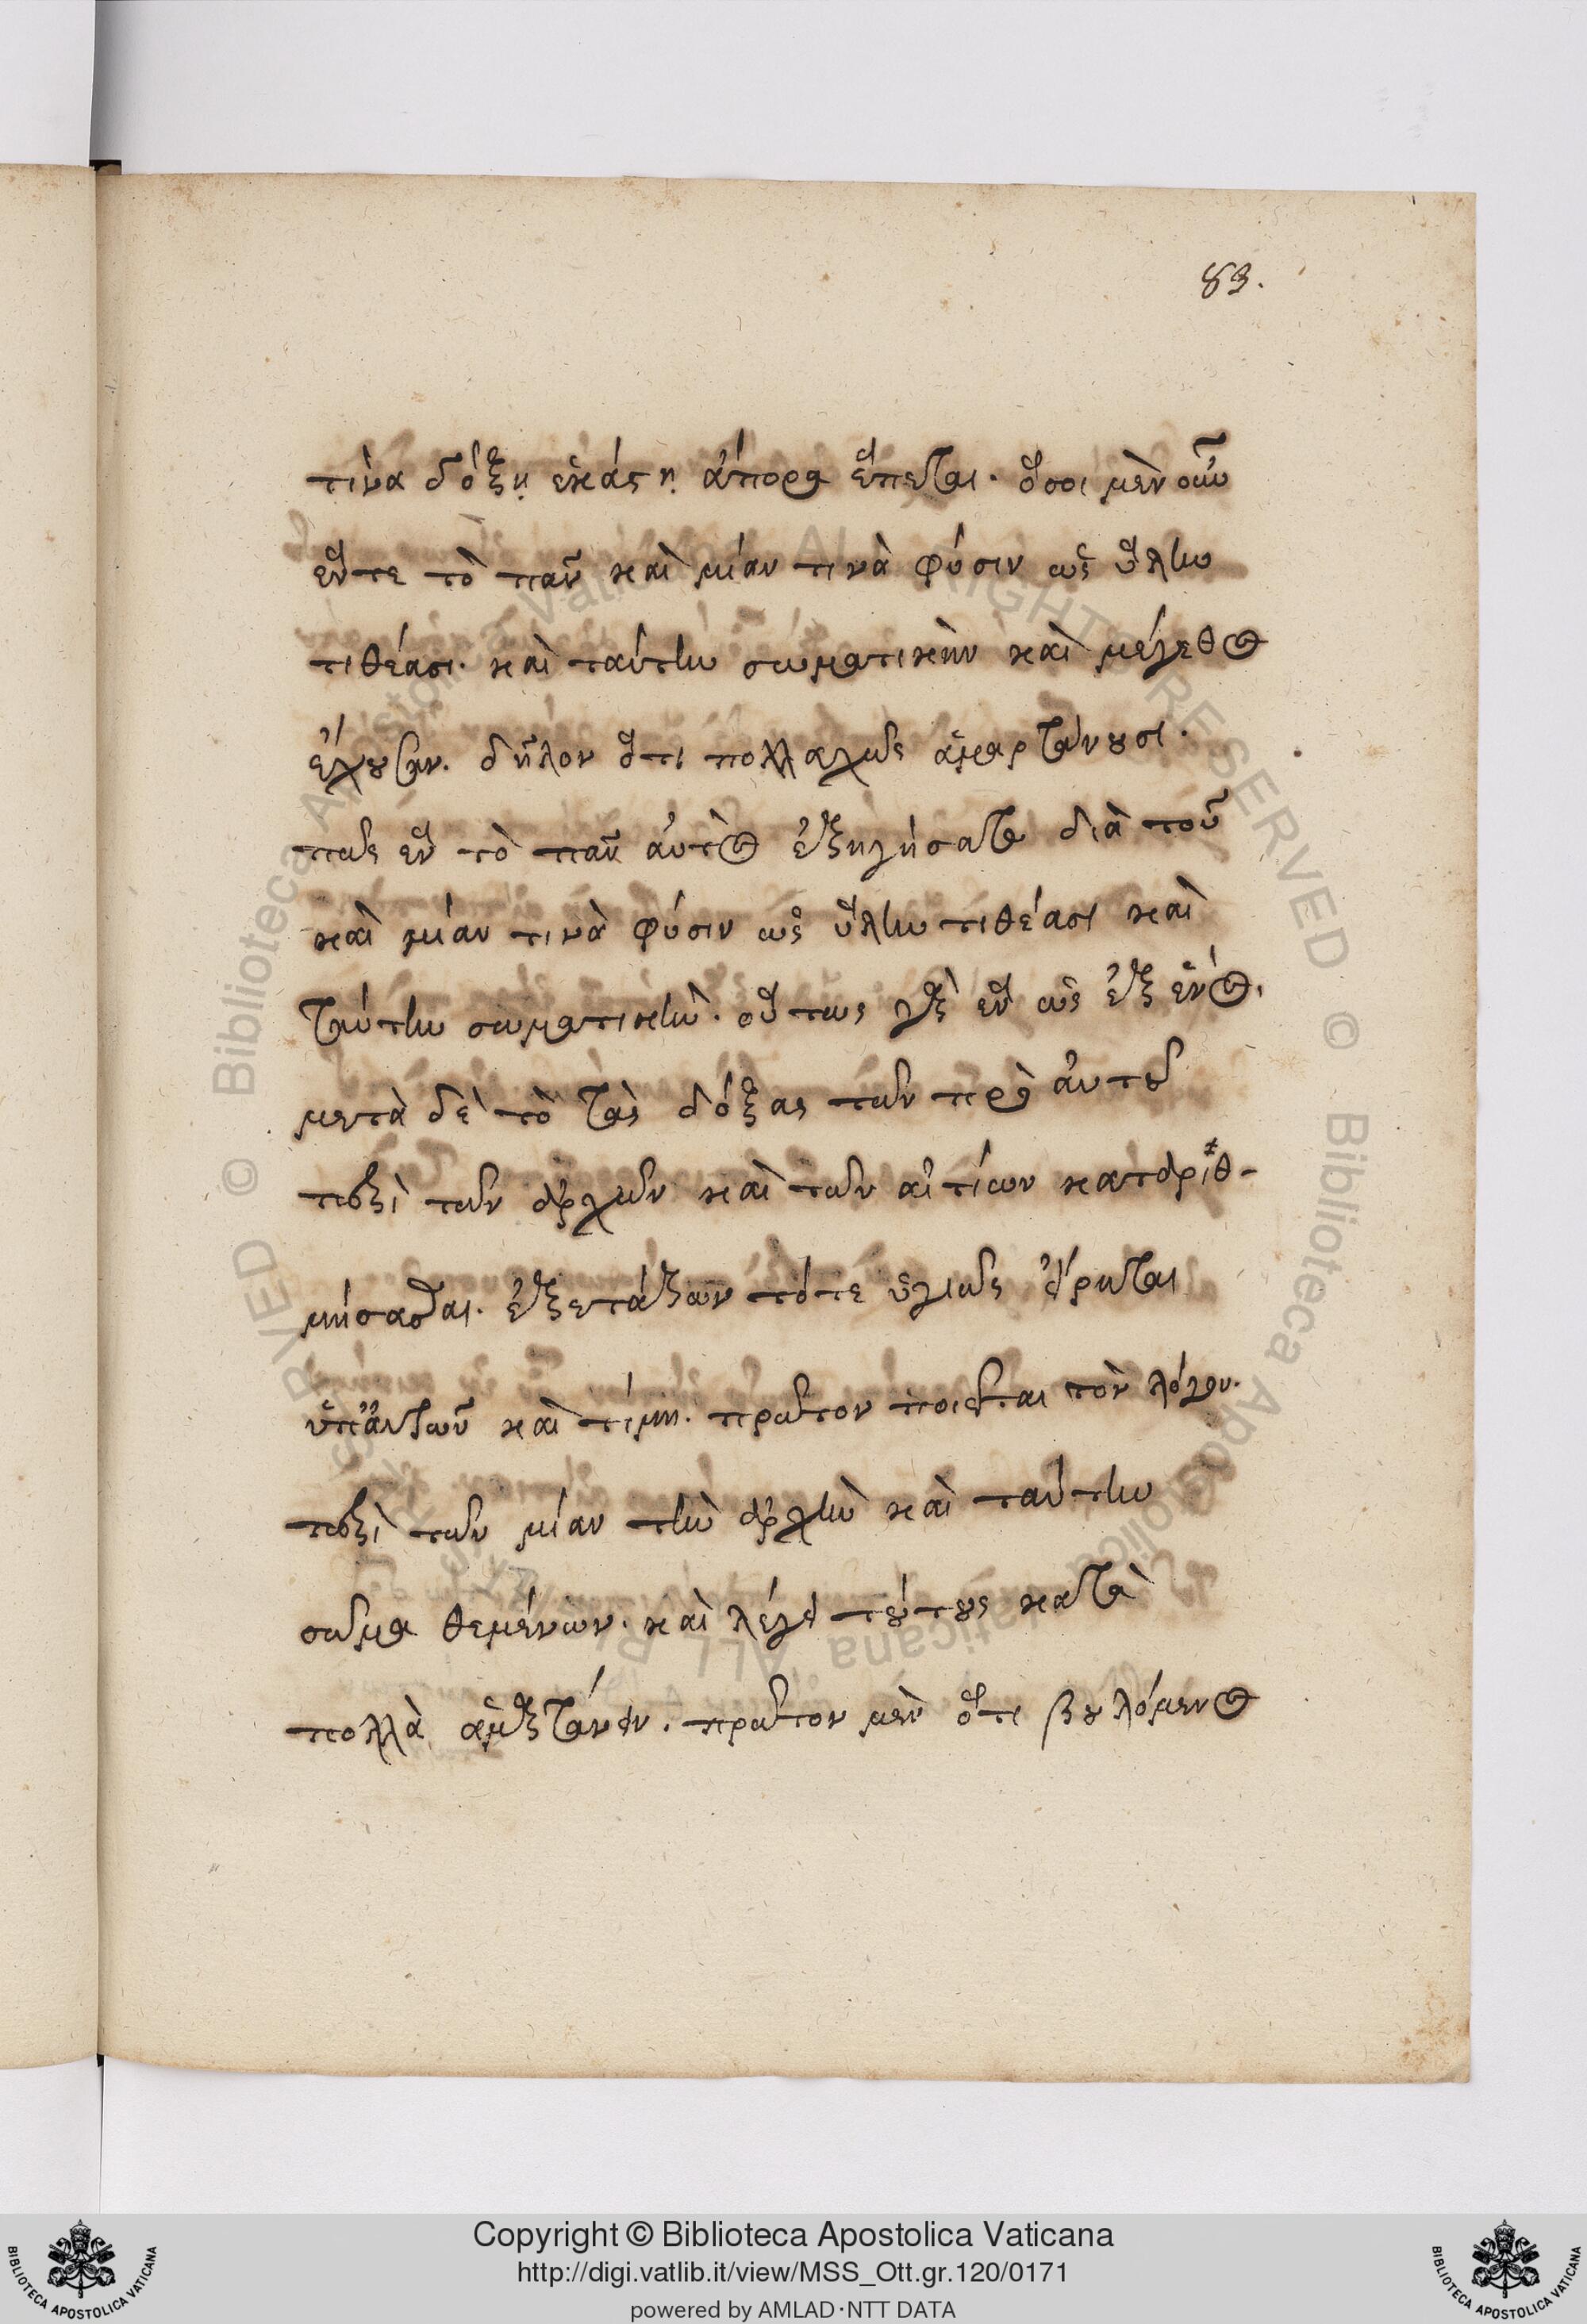 83.
τίνα δόξῃ ἑκάστῃ ἄπορα ἕπεται. ὅσοι μὲν οὖν
ἕν τε τὸ πᾶν καὶ μίαν τινὰ φύσιν ὡς ὕλην
τιθέασι. καὶ ταύτην σωματικὴν καὶ μέγεθος
ἔχουσαν. δῆλον ὅτι πολλαχῶς ἁμαρτάνουσι.
πῶς ἓν τὸ πᾶν αὐτὸς ἐξηγήσατο διὰ τοῦ
καὶ μίαν τινὰ φύσιν ὡς ὕλην τιθέασι καὶ
ταύτην σωματικήν. οὕτως γὰρ ἓν ὡς ἐξ ἑνός.
μετὰ δὲ τὸ τὰς δόξας τῶν πρὸ αὐτοῦ
περὶ τῶν ἀρχῶν καὶ τῶν αἰτίων καταριθ-
μήσασθαι. ἐξετάζων τό τε ὑγιῶς εἴρηται
ὑπ' αὐτῶν καὶ τί μή. πρῶτον ποιεῖται τὸν λόγον.
περὶ τῶν μίαν τὴν ἀρχὴν καὶ ταύτην
σῶμα θεμένων. καὶ λέγει τούτους κατὰ
πολλὰ ἁμαρτάνειν. πρῶτον μὲν ὅτι βουλόμενος
Copyright © Biblioteca Apostolica Vaticana
http://digi.vatlib.it/view/MSS_Ott.gr.120/0171
powered by AMLAD·NTT DATA